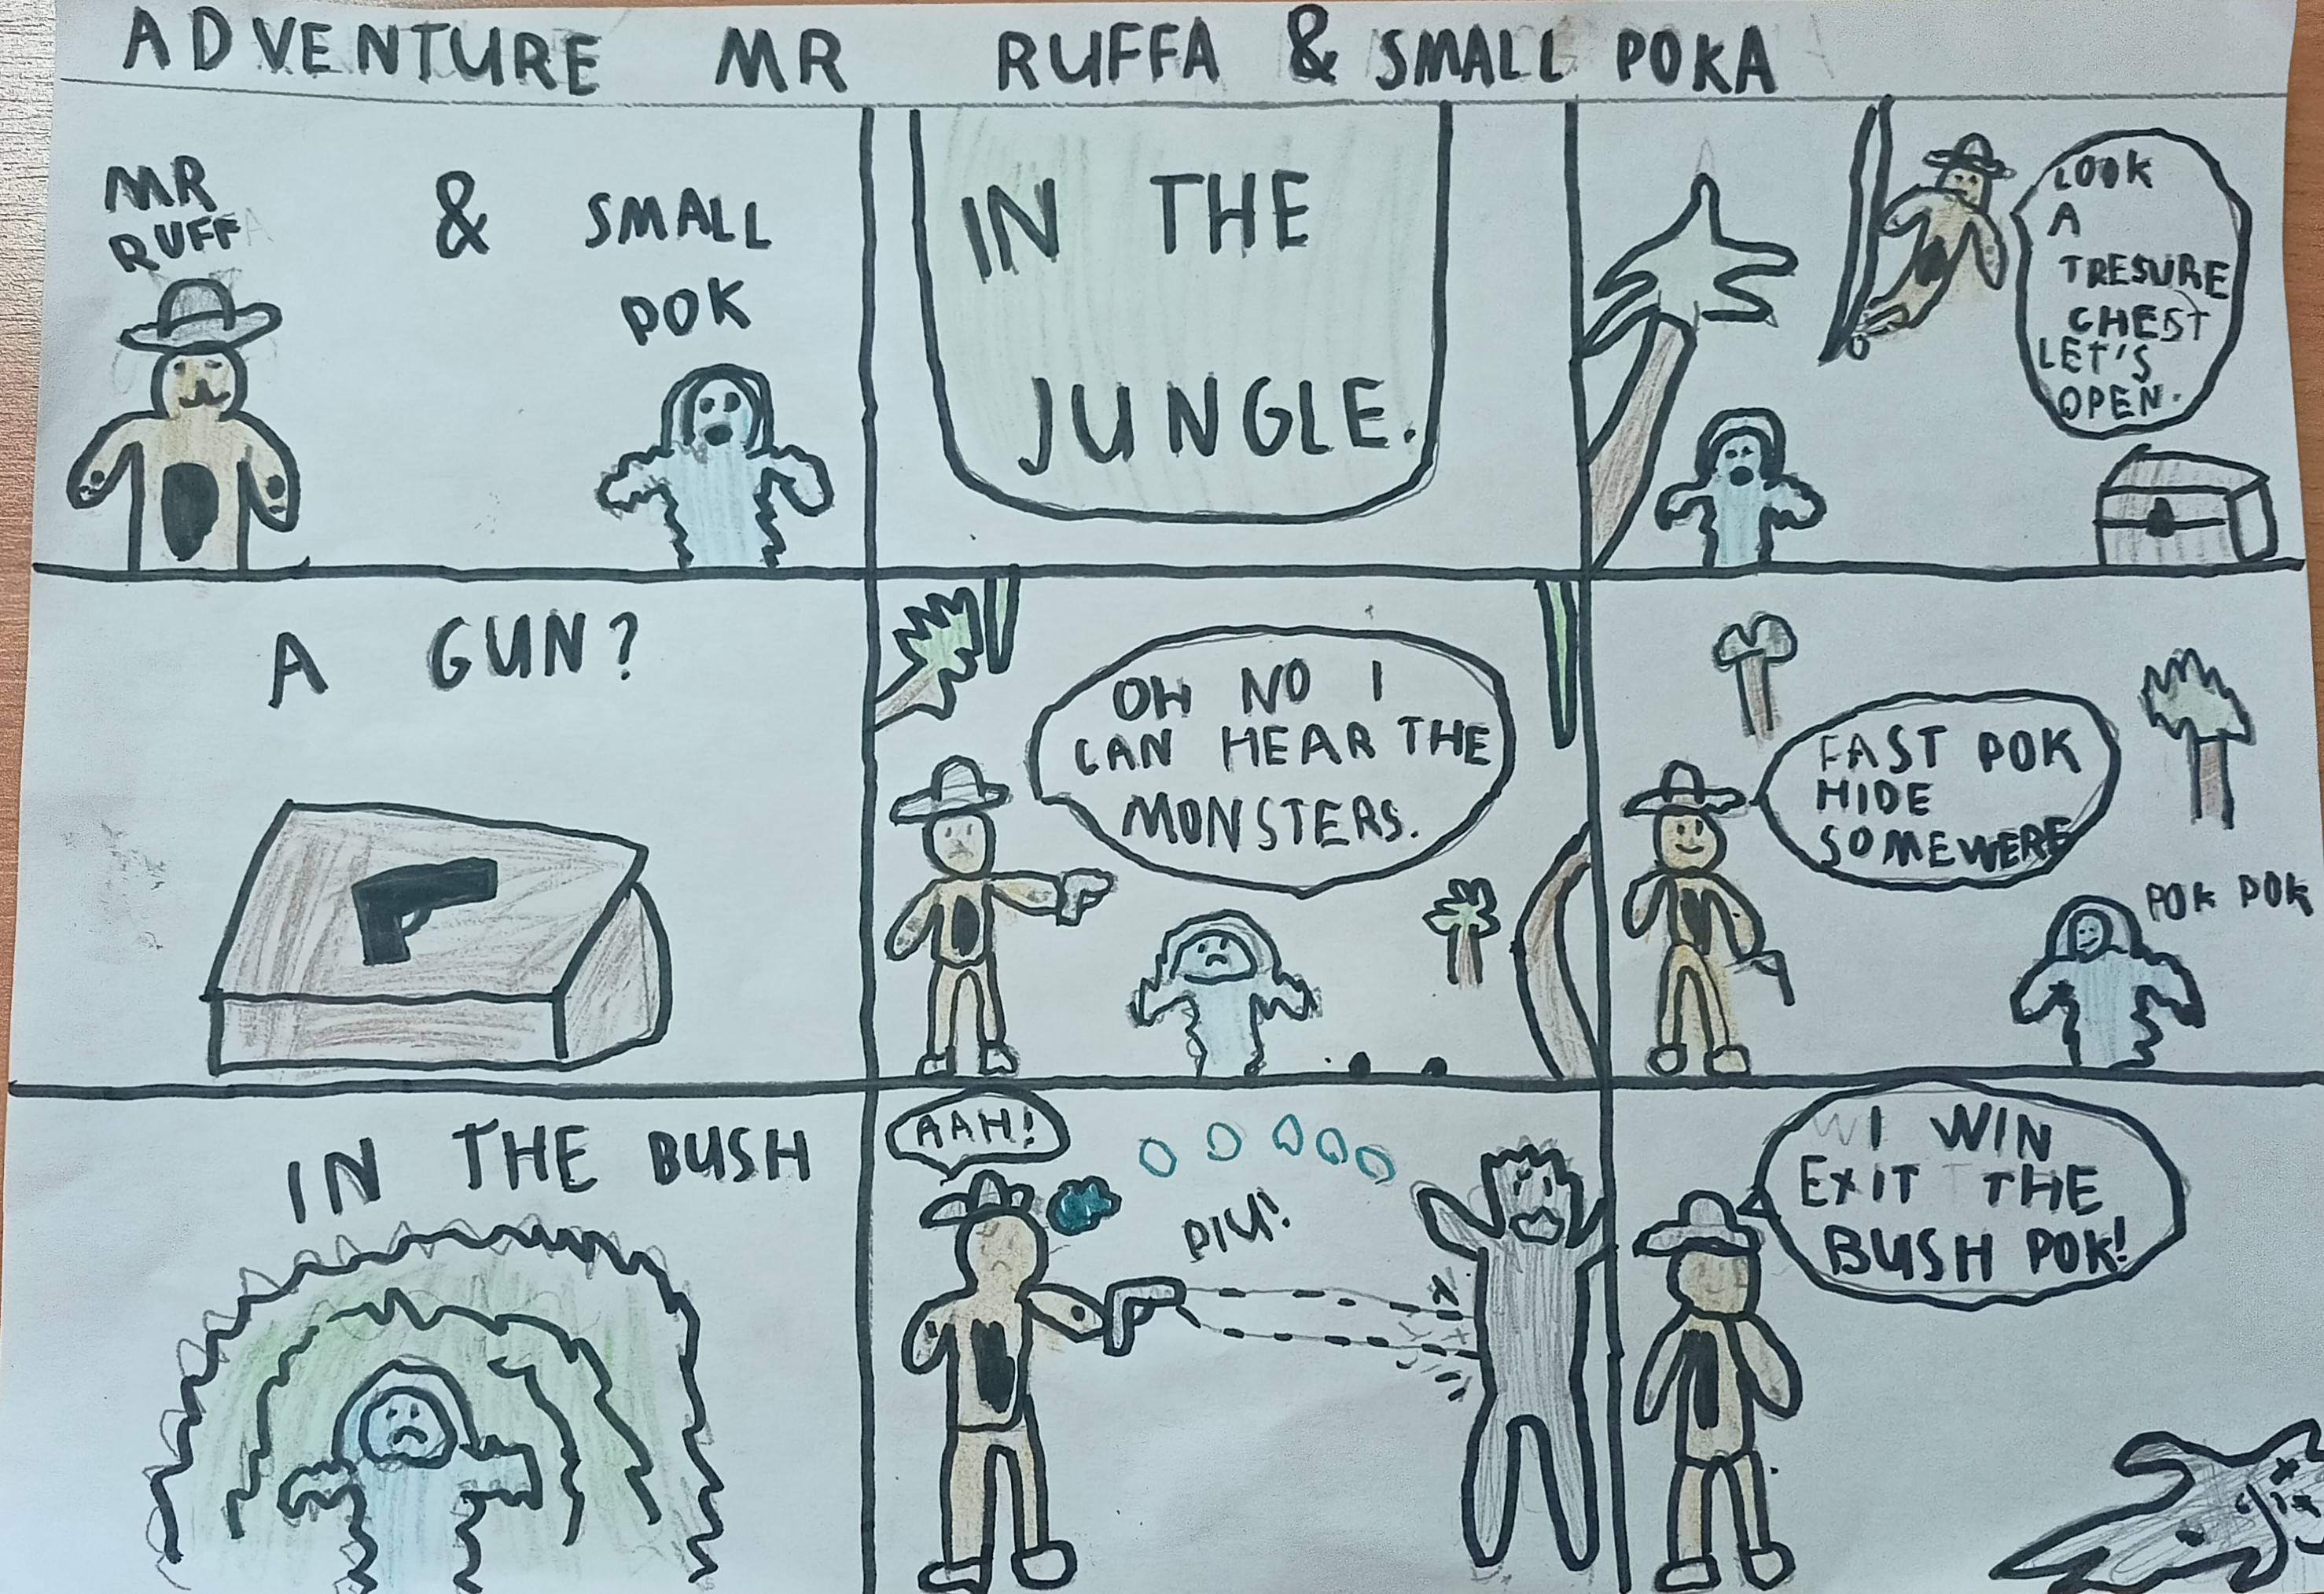 ADVENTURE MR RUFFA & SMALL POKA
MR
RUFF
&
SMALL
POK
IN THE
JUNGLE.
LOOK
A
TRESURE
CHEST
LET'S
OPEN.
A GUN?
OH NO I
CAN HEAR THE
MONSTERS.
FAST POK
HIDE
SOMEWERE
POK POK
IN THE BUSH
AAH!
I WIN
EXIT THE
BUSH POK!